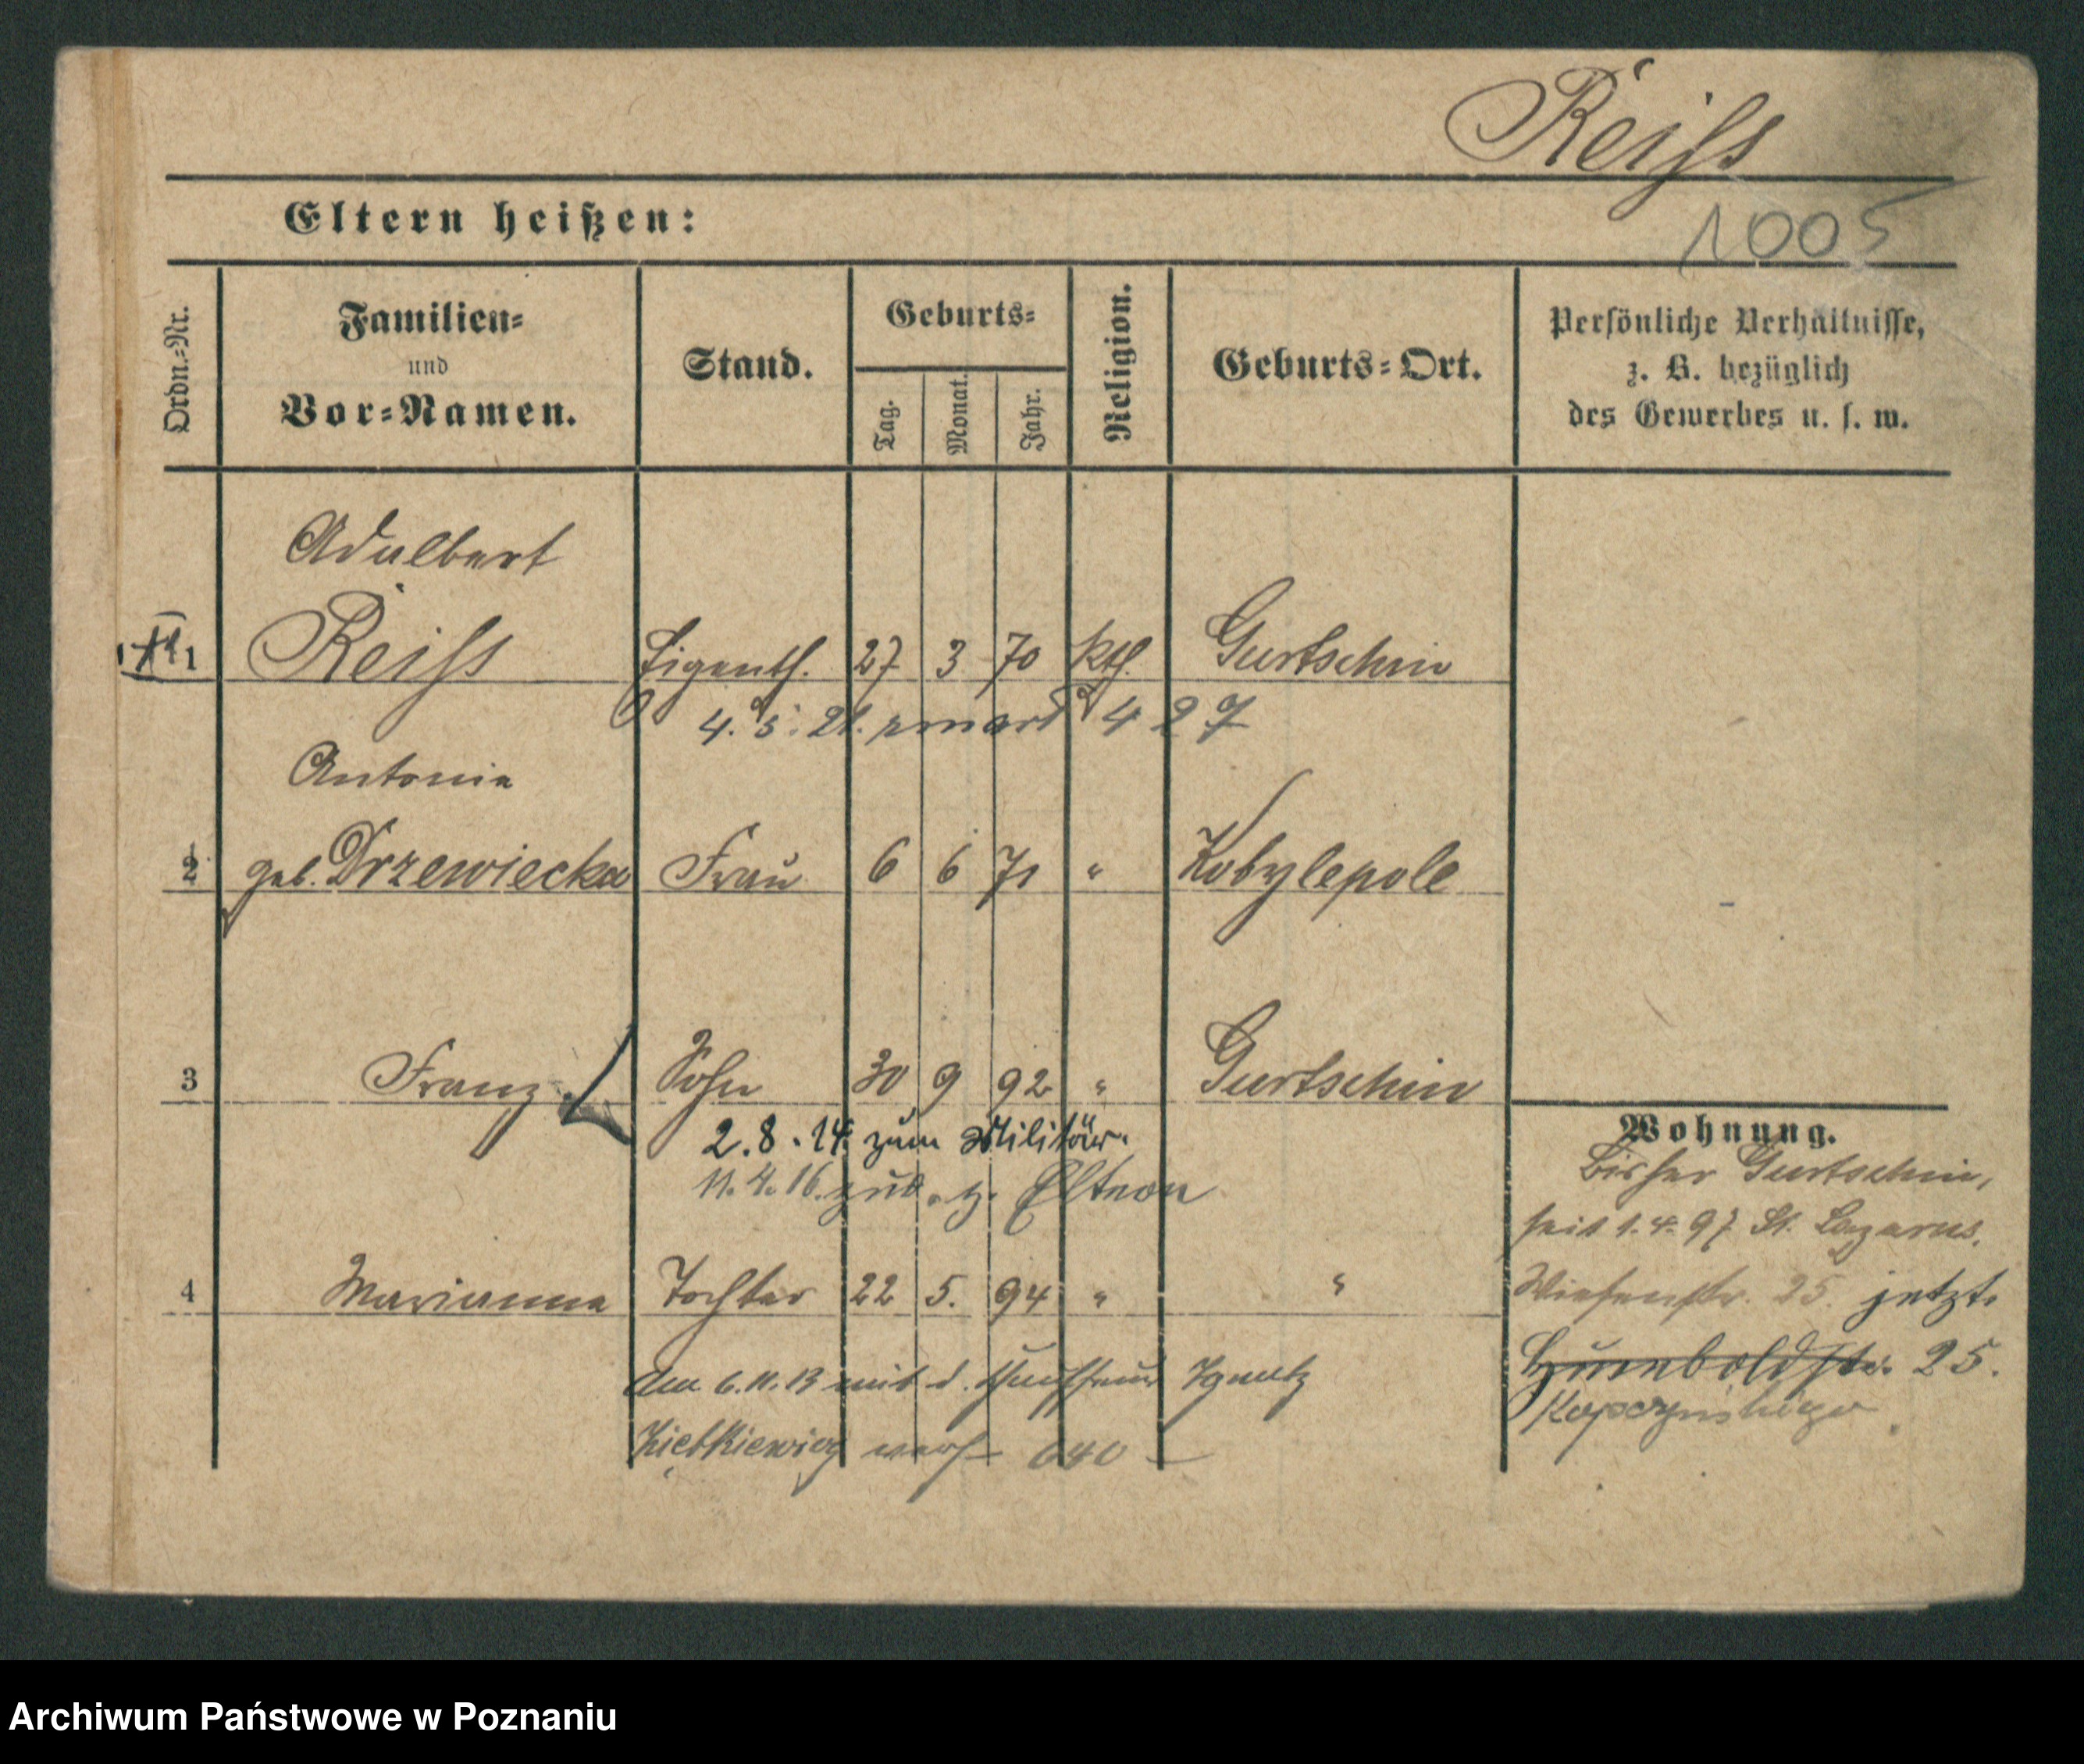 Reiſs
Eltern heißen:
1005
Ordn.=Nr.
Familien=
und
Vor=Namen.
Stand.
Geburts=
Tag.
Monat.
Jahr.
Religion.
Geburts=Ort.
Persönliche Verhältnisse,
z. B. bezüglich
des Gewerbes u. s. w.
Adalbert
1 Reiſs Eigenth. 27 3 70 kth. Gurtschin
4. 5. 21. zmarł 427
Antonia
2 geb. Drzewiecka Frau 6 6 71 " Kobylepole
3 Franz Sohn 30 9 92 " Gurtschin
2.8.14. zum Militär.
11.4.16. zur. z. Eltern
4 Marianna Tochter 22 5. 94 " "
Am 6.11.13 mit d. Kaufmann Ignatz
verh 640
Wohnung.
Bisher Gurtschin,
seit 1.4.97 St. Lazarus,
Wiesenstr. 25. jetzt
Humboldstr. 25.